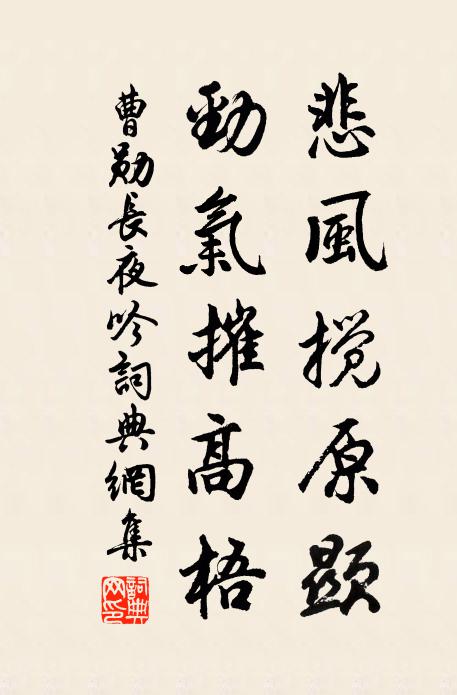 悲風搅原顯
勁氣摧高梧
曹勛長夜吟詞典網集
詞典網印